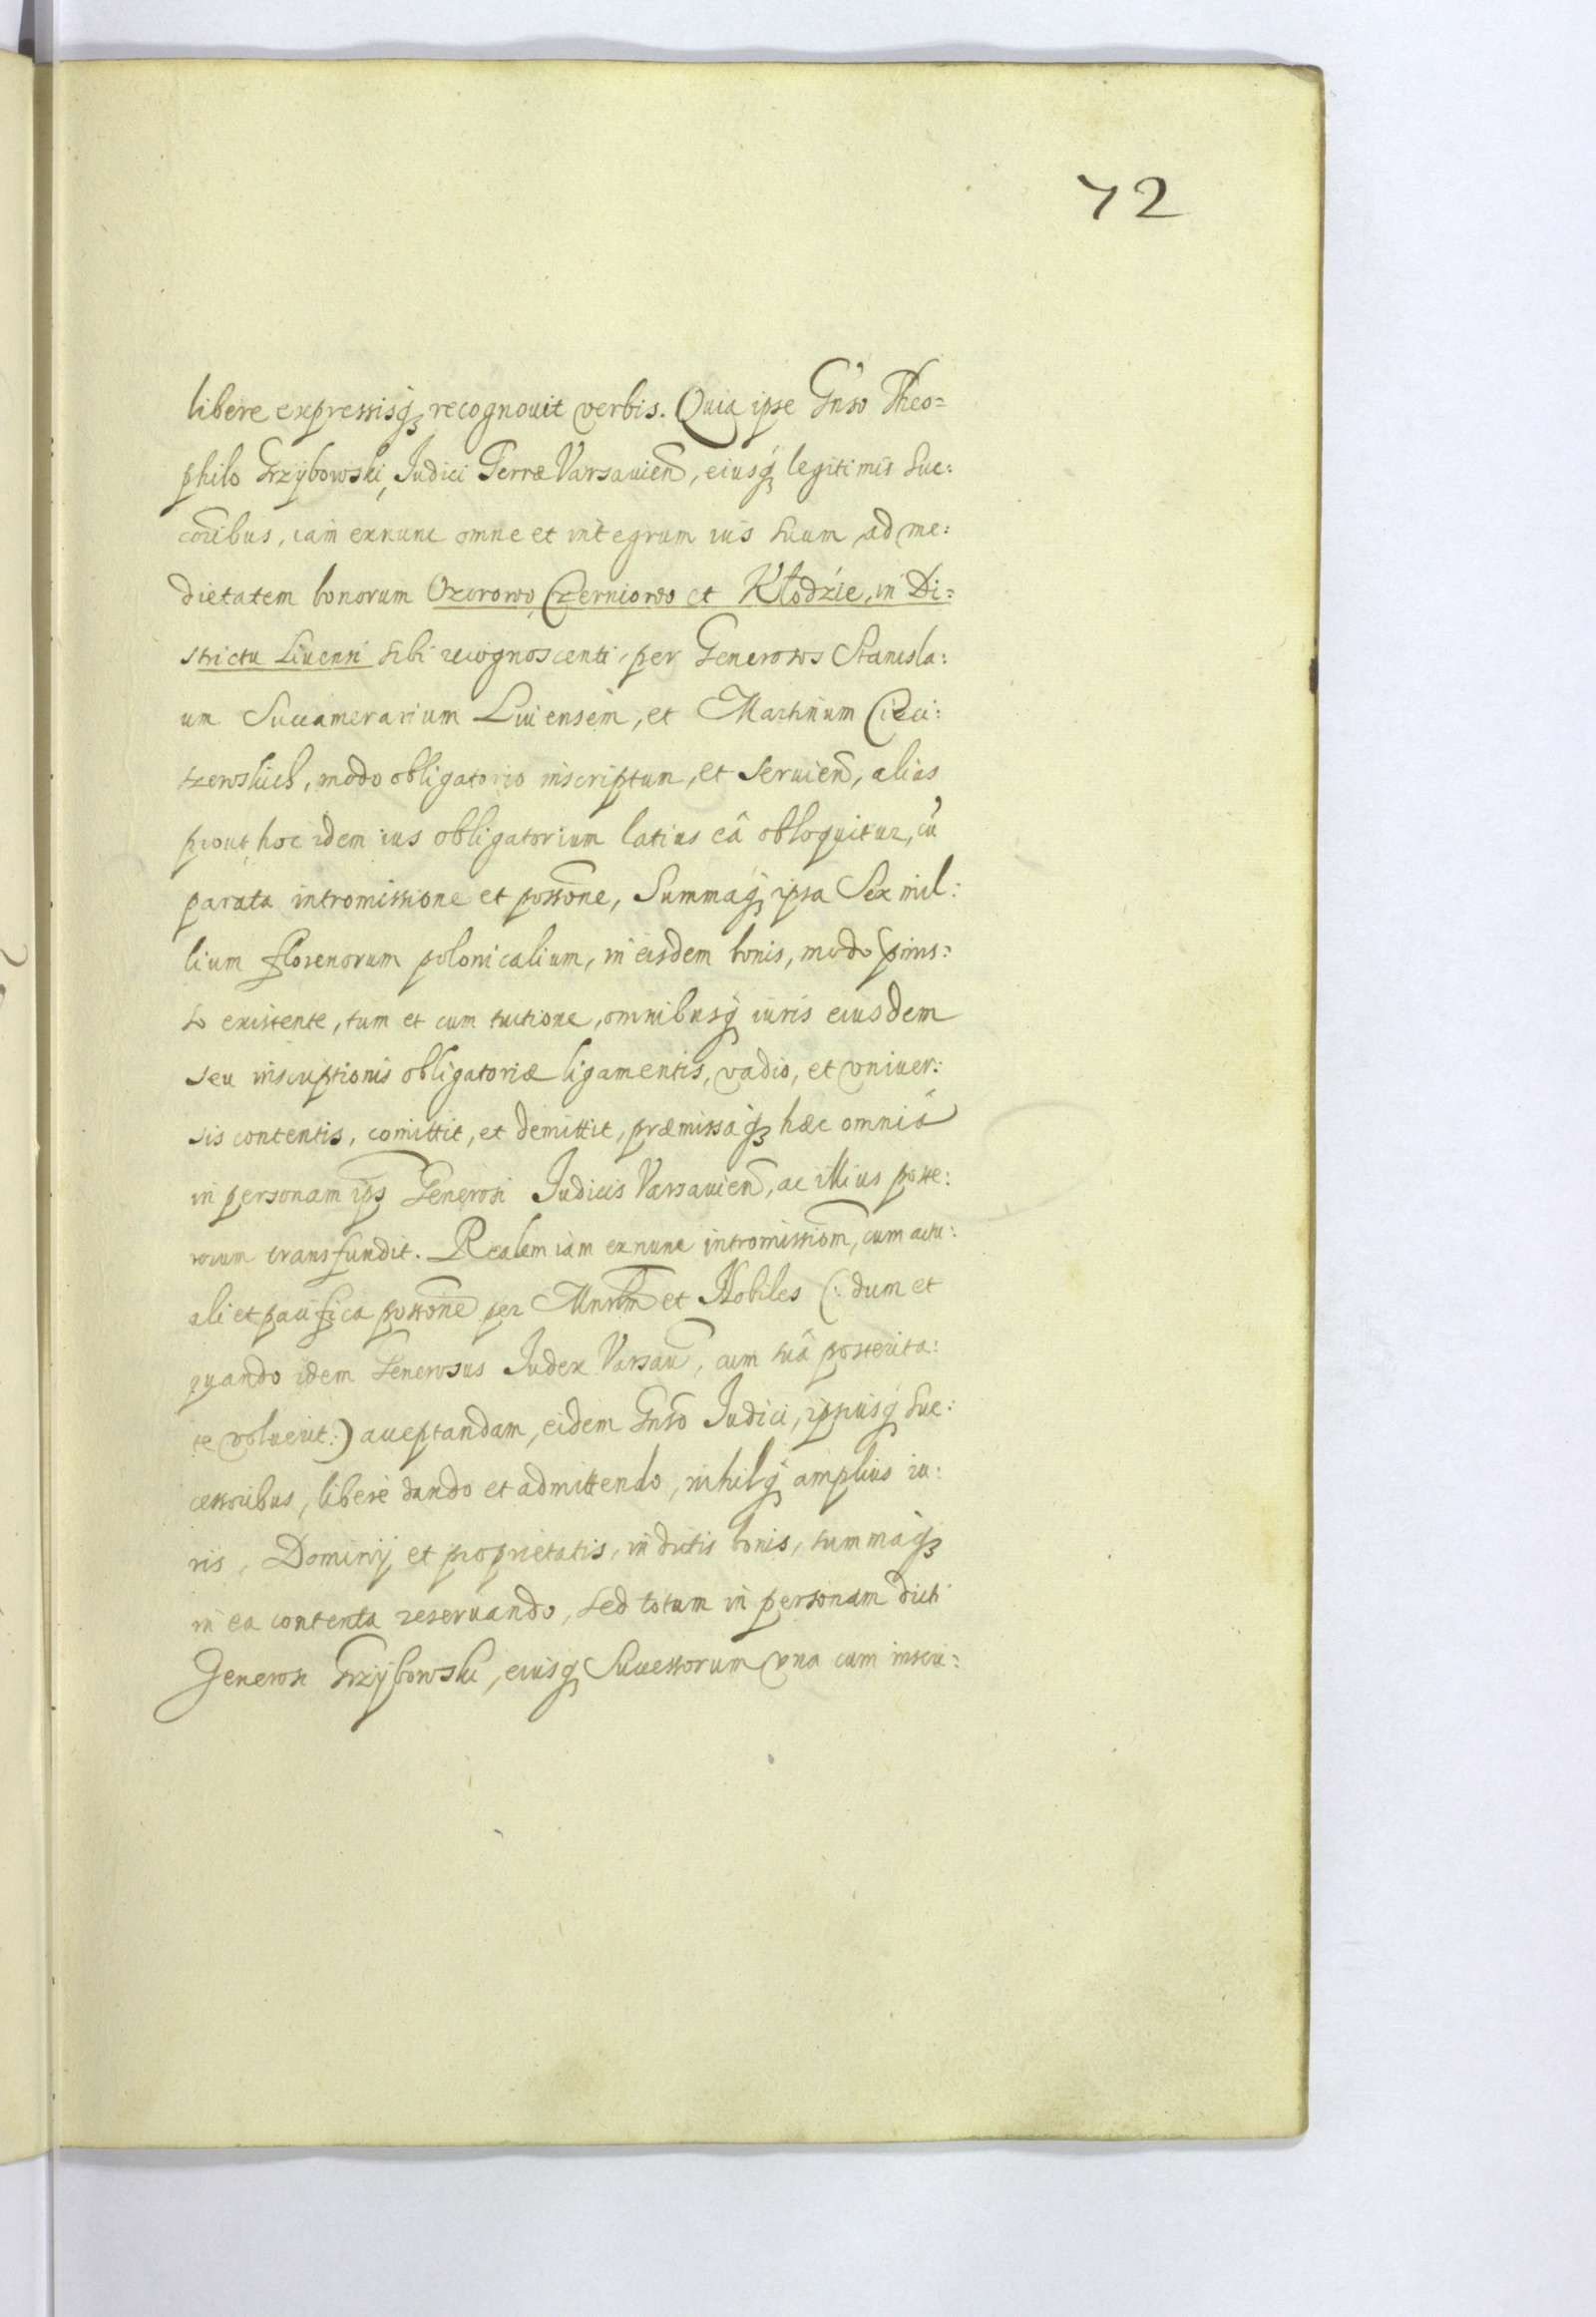 72
libere expressisq₃ recognouit verbis. Quia ipse Gnso Theo=
philo Grzybowski, Iudici Terræ Varsauien, eiusq₃ legitimis Suc:
coribus, iam exnunc omne et integrum ius suum ad me:
dietatem bonorum Ozorowo, Czerniowo et Kłodzie, in Di=
strictu Liuensi sibi recognoscenti, per Generosos Stanisla:
um Succamerarium Liuensem, et Martinum Cieci:
szewskich, modo obligatorio inscriptum, et seruien, alias
prout hoc idem ius obligatorium latius eâ obloquitur, cũ
parata intromissione et possone, Summaq₃ ipsa Sex mil:
lium florenorum polonicalium, in eisdem bonis, modo pims:
so existente, tum et cum tuitione, omnibusq₃ iuris eiusdem
seu inscriptionis obligatoriæ ligamentis, vadio, et vniuer:
sis contentis, comittit, et demittit, præmissaq₃ hæc omnia
in personam ips Generosi Iudicis Varsauien, ac illius poste:
rorum transfundit. Realem iam exnunc intromissiom, cum actu:
ali et pacifica possone per Mnrlm et Nobiles (: dum et
quando idem Generosus Iudex Varsau, cum suâ posterita:
te voluerit :) acceptandam, eidem Gnso Iudici, ipsiusq₃ Suc:
cessoribus, libere dando et admittendo, nihilq₃ amplius iu:
ris, Dominij et proprietatis, in dictis bonis, summaq₃
in ea contenta reseruando, sed totum in personam dicti
Generosi Grzybowski, eiusq₃ Successorum vna cum inscri: